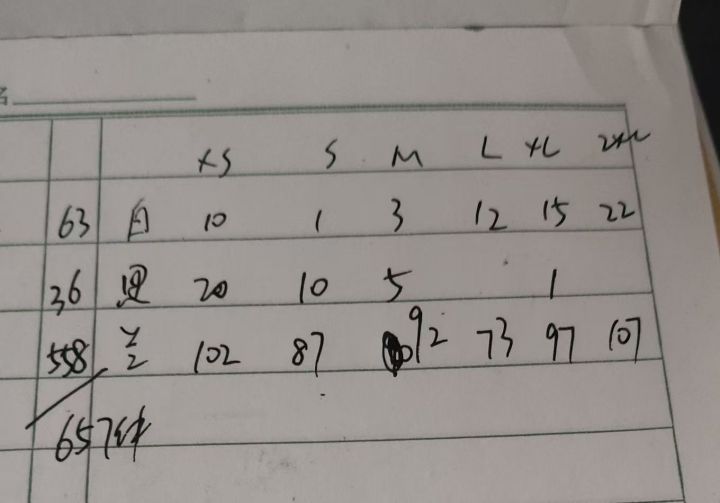 名
XS S M L XL 2XL
63 白 10 1 3 12 15 22
36 黑 20 10 5 1
558 102 87 92 73 97 107
657件